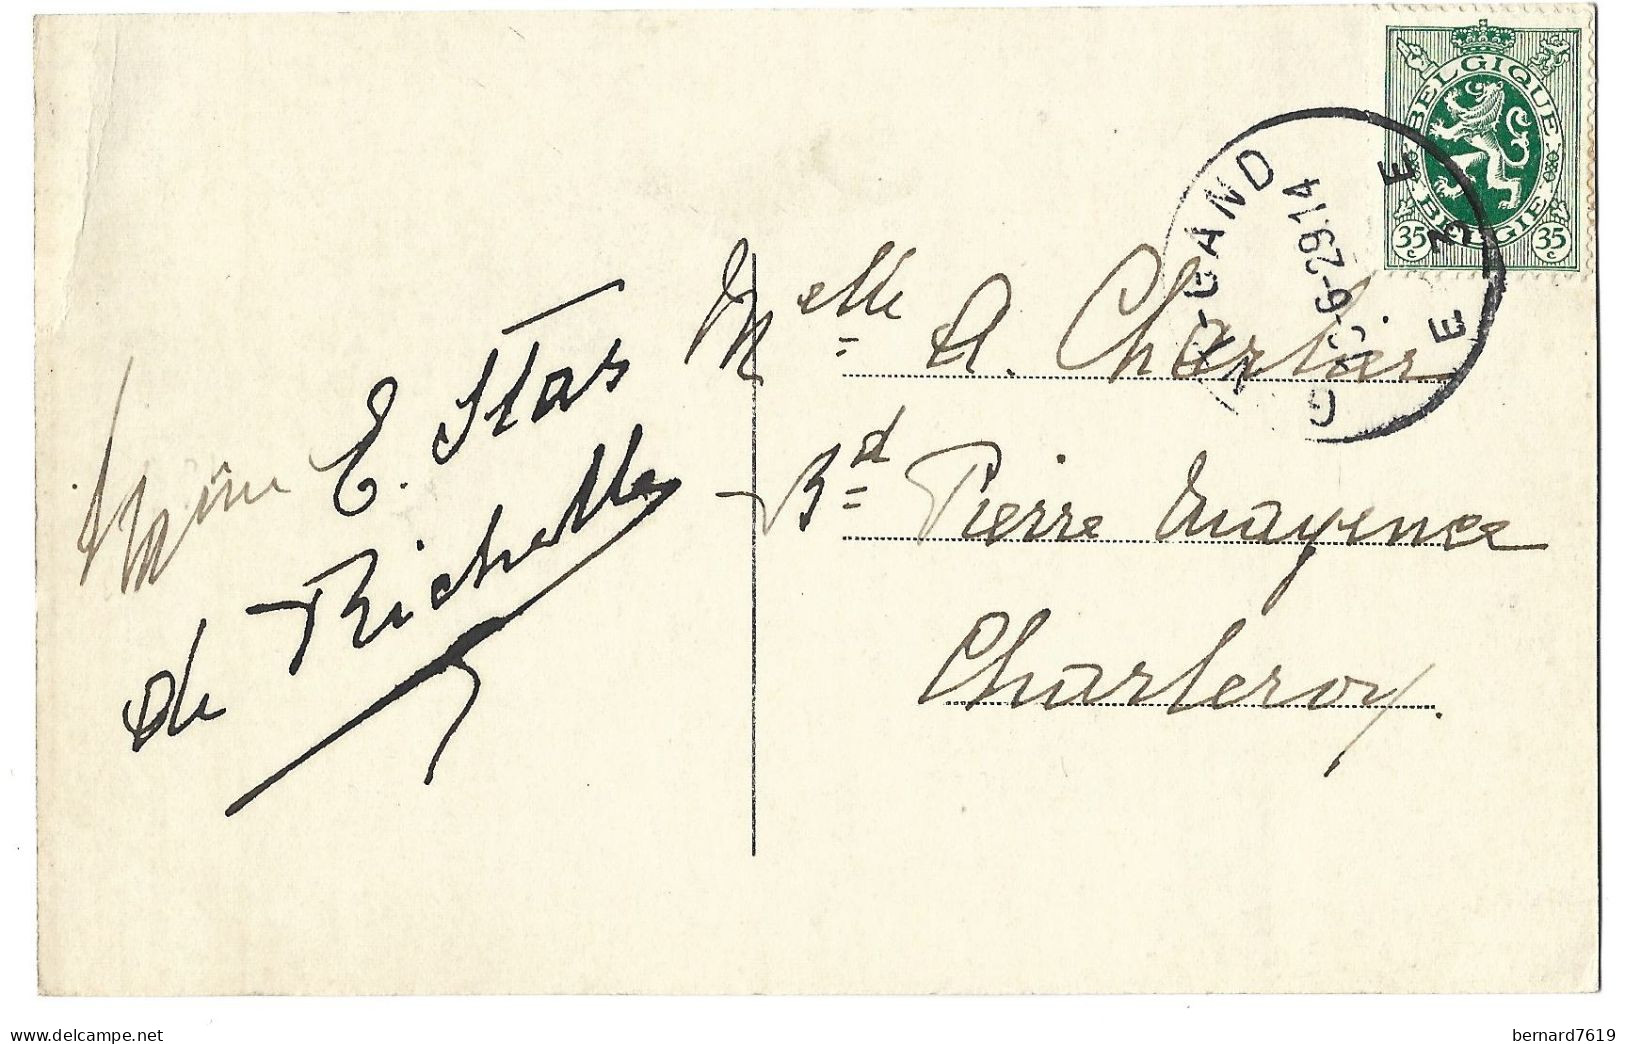 BELGIQUE
BELGIË
35c 35c
GAND
29 14
Mme E. Stas
de Richelle
Melle A. Charlier
Bd Pierre Mayence
Charleroy.
www.delcampe.net
bernard7619